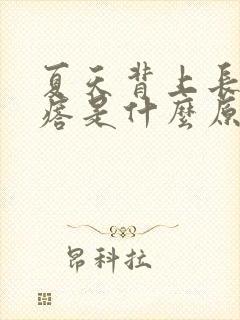 夏天背上長
痞是什麼原
昂科拉